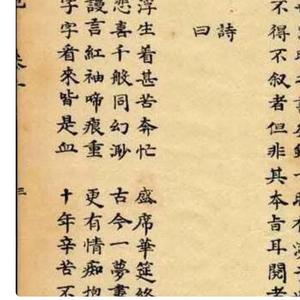 不得不叙者但非其本旨耳閱者
詩
曰
浮生着甚苦奔忙 盛席華筵終
悲喜千般同幻渺 古今一夢盡
謾言紅袖啼痕重 更有情痴抱
字字看來皆是血 十年辛苦不
三